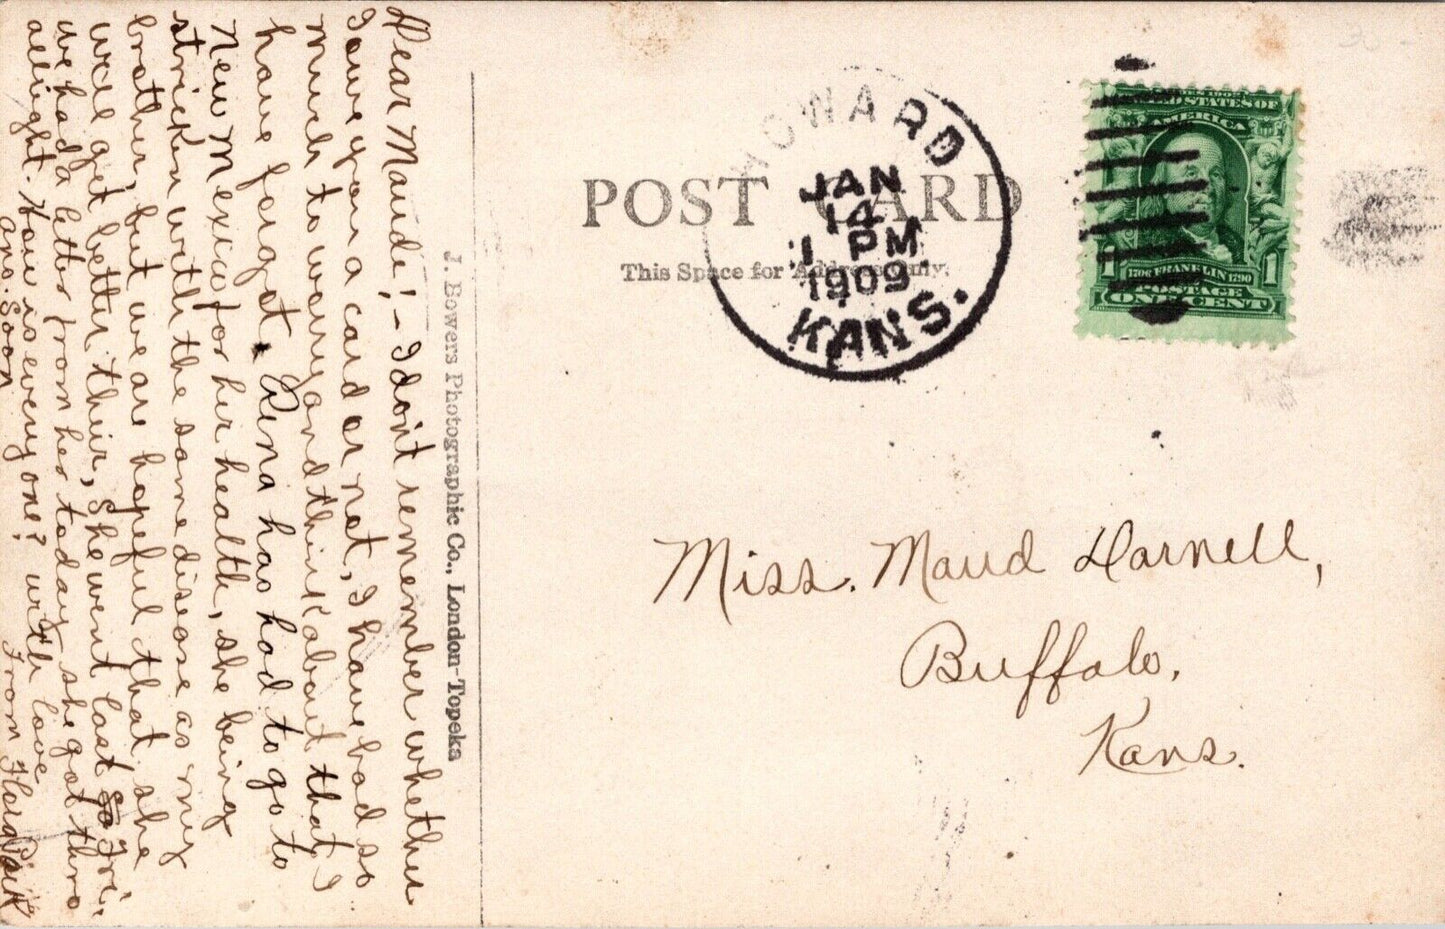 Dear Maude! - I don't remember whether
I owe you a card or not, I have had so
much to worry and think about that I
have forgot. Rena has had to go to
New Mexico for her health, she being
stricken with the same disease as my
brother, but we are hopeful that she
will get better their, She went last Fri.,
we had a letter from her today she got thro
allright. How is every one? with love
Ans. Soon From
J. Bowers Photographic Co., London-Topeka
POST CARD
This Space for Address Only.
HOWARD
JAN
14
1 PM
1909
KANS.
SERIES 1902
UNITED STATES OF
AMERICA
1 1706 FRANKLIN 1790 1
POSTAGE
ONE CENT
Miss. Maud Darnell,
Buffalo,
Kans.